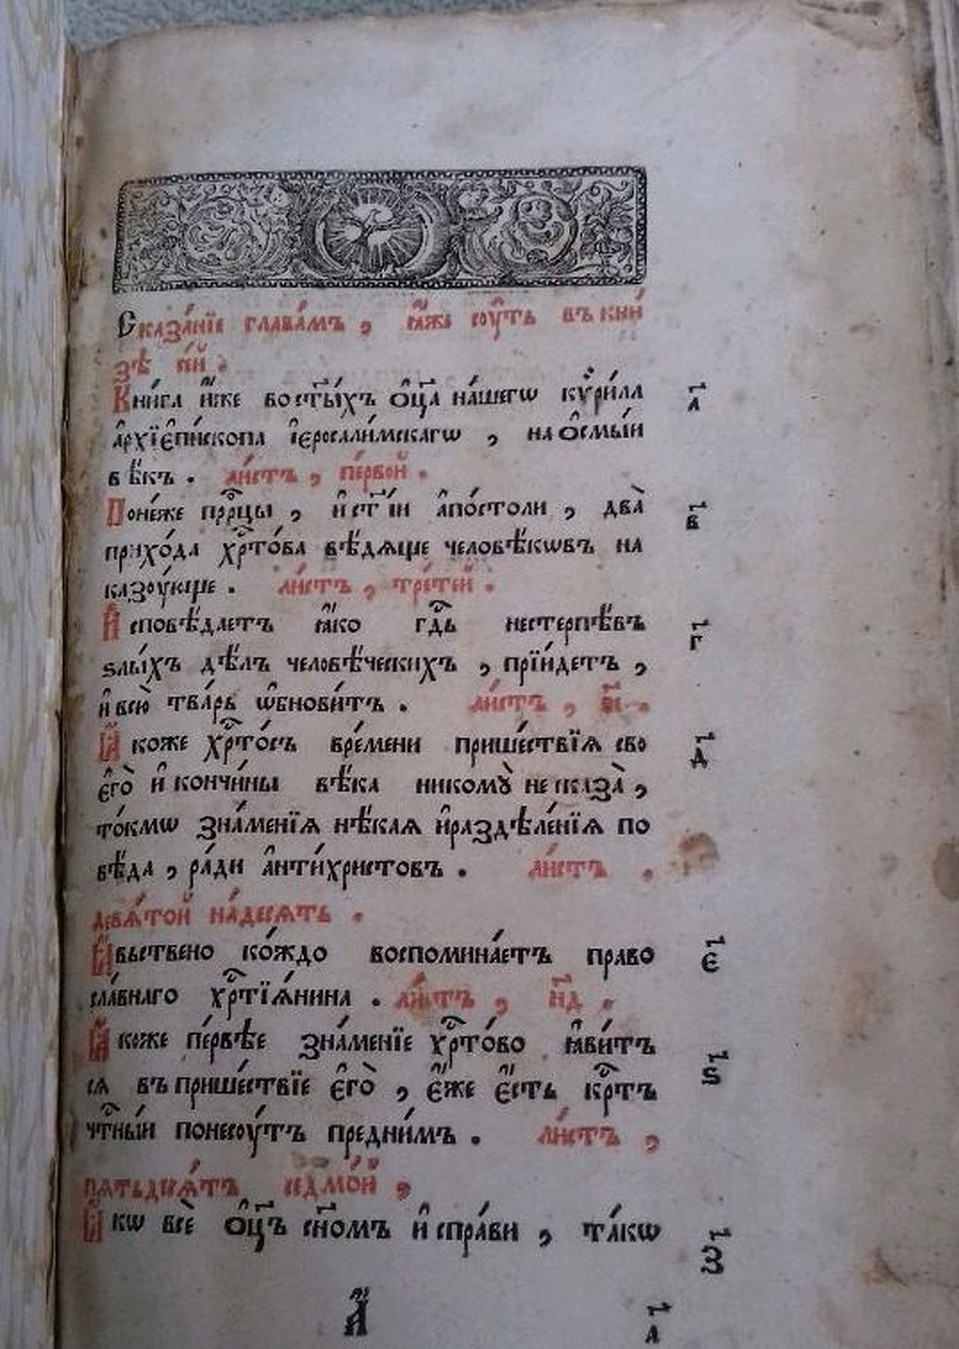 Сказа́нїе глава́мъ , ꙗ҆́же сꙋ́ть въ кни́
зѣ се́й .
Кни́га и҆́же во ст҃ы́хъ ѻ҆ц҃а̀ на́шегѡ кѷри́лла
а҆рхїе҆пи́скопа і҆еросали́мскагѡ , на ѻ҆смы́й
вѣ́къ . ли́стъ , пе́рвой .
а҃
Поне́же прⷪ҇рцы , и҆ ст҃і́и а҆по́столи , два̀
прихо́да хрⷭ҇то́ва вѣ́дѧще человѣ́кѡвъ на
казꙋ́юще . ли́стъ , тре́тей .
в҃
И҆сповѣ́даетъ ꙗ҆́кѡ гдⷭ҇ь нестерпѣ́въ
ѕлы́хъ дѣ́лъ человѣ́ческихъ , прїи́детъ ,
и҆ всю̀ тва́рь ѡ҆бнови́тъ . ли́стъ , в҃і .
г҃
Ꙗ҆́коже хрⷭ҇то́съ вре́мени прише́ствїѧ сво
е҆гѡ̀ и҆ кончи́ны вѣ́ка никомꙋ̀ не сказа̀ ,
то́кмѡ зна́менїѧ нѣ́каѧ и҆ раздѣле́нїѧ по
вѣ́да , ра́ди а҆нти́христовъ . ли́стъ .
девѧ́той на́десѧть .
д҃
Ꙗ҆́вьствено ко́ждо воспомина́етъ право
сла́внаго хрⷭ҇тїѧ́нина . ли́стъ , н҃д .
є҃
Ꙗ҆́коже пе́рвѣе зна́менїе хрⷭ҇то́во ꙗ҆ви́тъ
сѧ въ прише́ствїе є҆гѡ̀ , є҆́же є҆́сть крⷭ҇тъ
чⷭ҇тны́й понесꙋ́тъ предни́мъ . ли́стъ ,
пѧтьдесѧ́тъ седмо́й ,
ѕ҃
Ꙗ҆́кѡ всѐ ѻ҆ц҃ъ сн҃омъ и҆спра́ви , та́кѡ
з҃
а҃